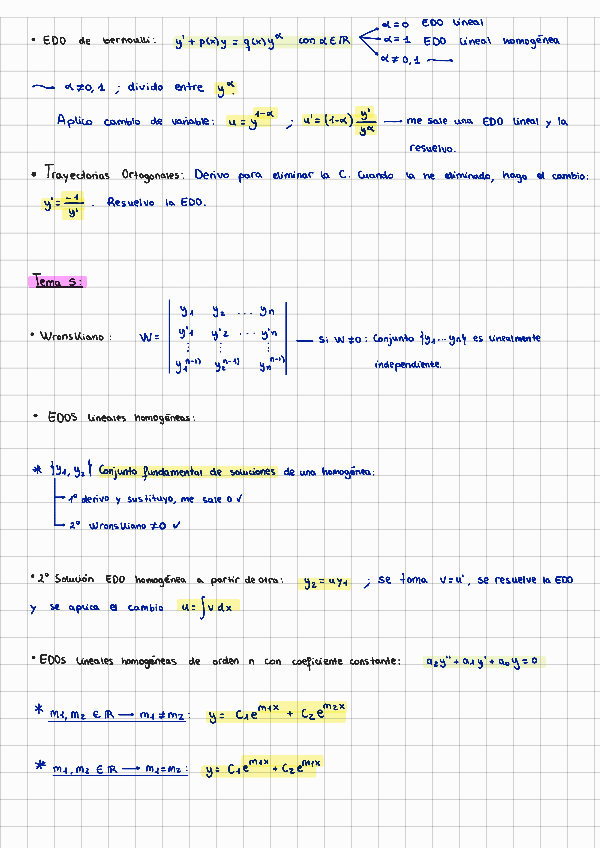 • EDO de bernoulli: y' + p(x)y = q(x)y^α con α ∈ ℝ
α = 0 EDO lineal
α = 1 EDO lineal homogénea
α ≠ 0,1 →
→ α ≠ 0,1 ; divido entre y^α.
Aplico cambio de variable: u = y^(1-α) ; u' = (1-α) y'/y^α → me sale una EDO lineal y la
resuelvo.
• Trayectorias Ortogonales: Derivo para eliminar la C. Cuando la he eliminado, hago el cambio:
y' = -1/y' . Resuelvo la EDO.
Tema 5:
• Wronskiano: W = | y₁ y₂ ... yn |
| y'₁ y'₂ ... y'n | — Si W ≠ 0: Conjunto {y₁...yn} es linealmente
| ⋮ ⋮ ⋮ |
| y₁^(n-1) y₂^(n-1) yn^(n-1) | independiente.
• EDOS lineales homogéneas:
* {y₁, y₂} Conjunto fundamental de soluciones de una homogénea:
1º derivo y sustituyo, me sale 0 ✓
2º Wronskiano ≠ 0 ✓
• 2º Solución EDO homogénea a partir de otra: y₂ = uy₁ ; se toma v = u', se resuelve la EDO
y se aplica el cambio u = ∫v dx
• EDOs lineales homogéneas de orden n con coeficiente constante: a₂y'' + a₁y' + a₀y = 0
* m₁, m₂ ∈ ℝ → m₁ ≠ m₂: y = C₁e^(m₁x) + C₂e^(m₂x)
* m₁, m₂ ∈ ℝ → m₁ = m₂: y = C₁e^(m₁x) + C₂e^(m₁x)